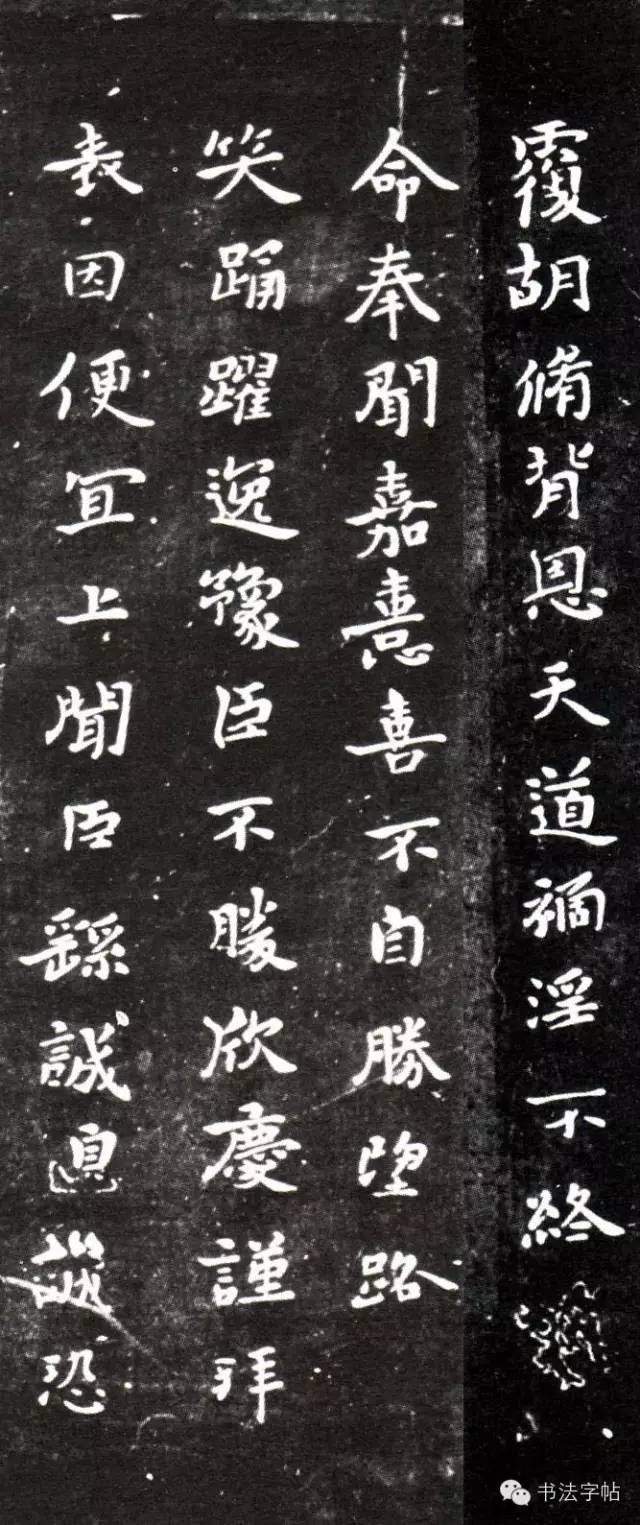 覆胡脩背恩天道禍淫不終
命奉聞嘉憙喜不自勝望路
笑踊躍逸豫臣不勝欣慶謹拜
表因便宜上聞臣繇誠誠恐
书法字帖